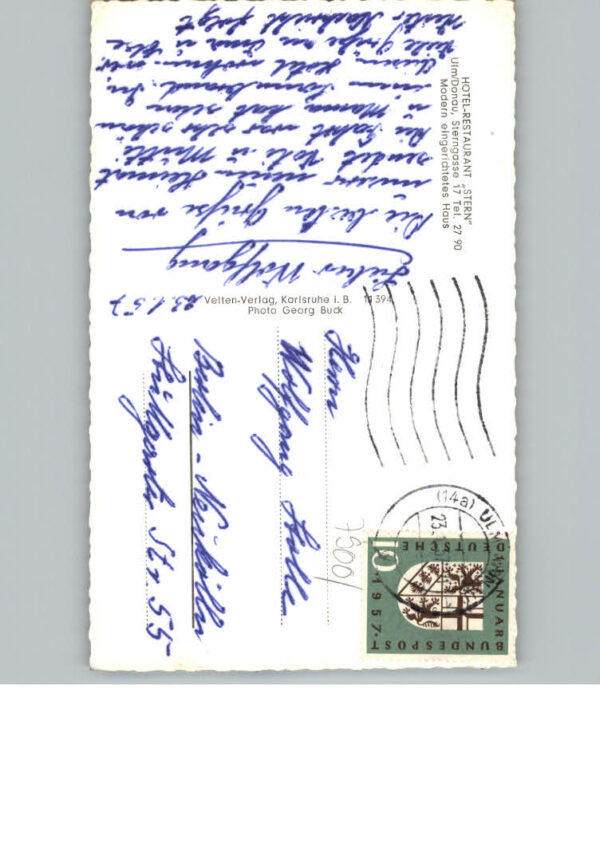 HOTEL-RESTAURANT „STERN"
Ulm/Donau, Sterngasse 17 Tel. 27 90
Modern eingerichtetes Haus
Lieber Wolfgang
Die besten Grüße von
unserer neuen Heimat
sendet Vati u Mutti
Die Fahrt war sehr schön
u Mama hat schon
einen Sonnenbrand. In
diesem Hotel wohnen wir
Viele Grüße an
Nachricht folgt
23.1.57
Velten-Verlag, Karlsruhe i. B. 11394
Photo Georg Buck
Herrn
Wolfgang
Berlin - Neukölln
Stuttgarter Str. 55
7500
(14a) UL
23.
10
DEUTSCHE
BUNDESPOST
JANUAR
1957